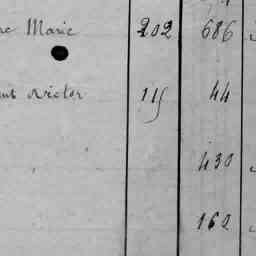 Marie 202 686
Victor 115 44
430
162